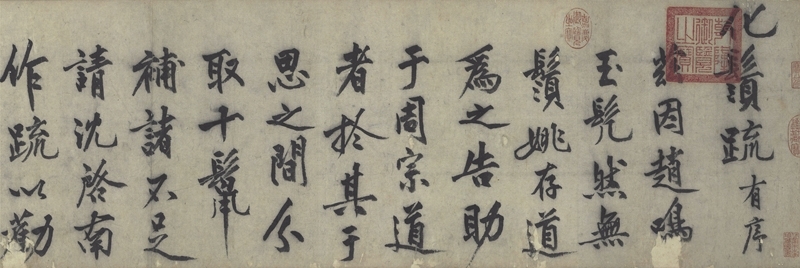 化鬚疏有序
茲因趙鳴
玉髠然無
鬚姚存道
爲之告助
于周宗道
者於其于
思之間分
取十鬣
補諸不足
請沈啓南
作疏以勸